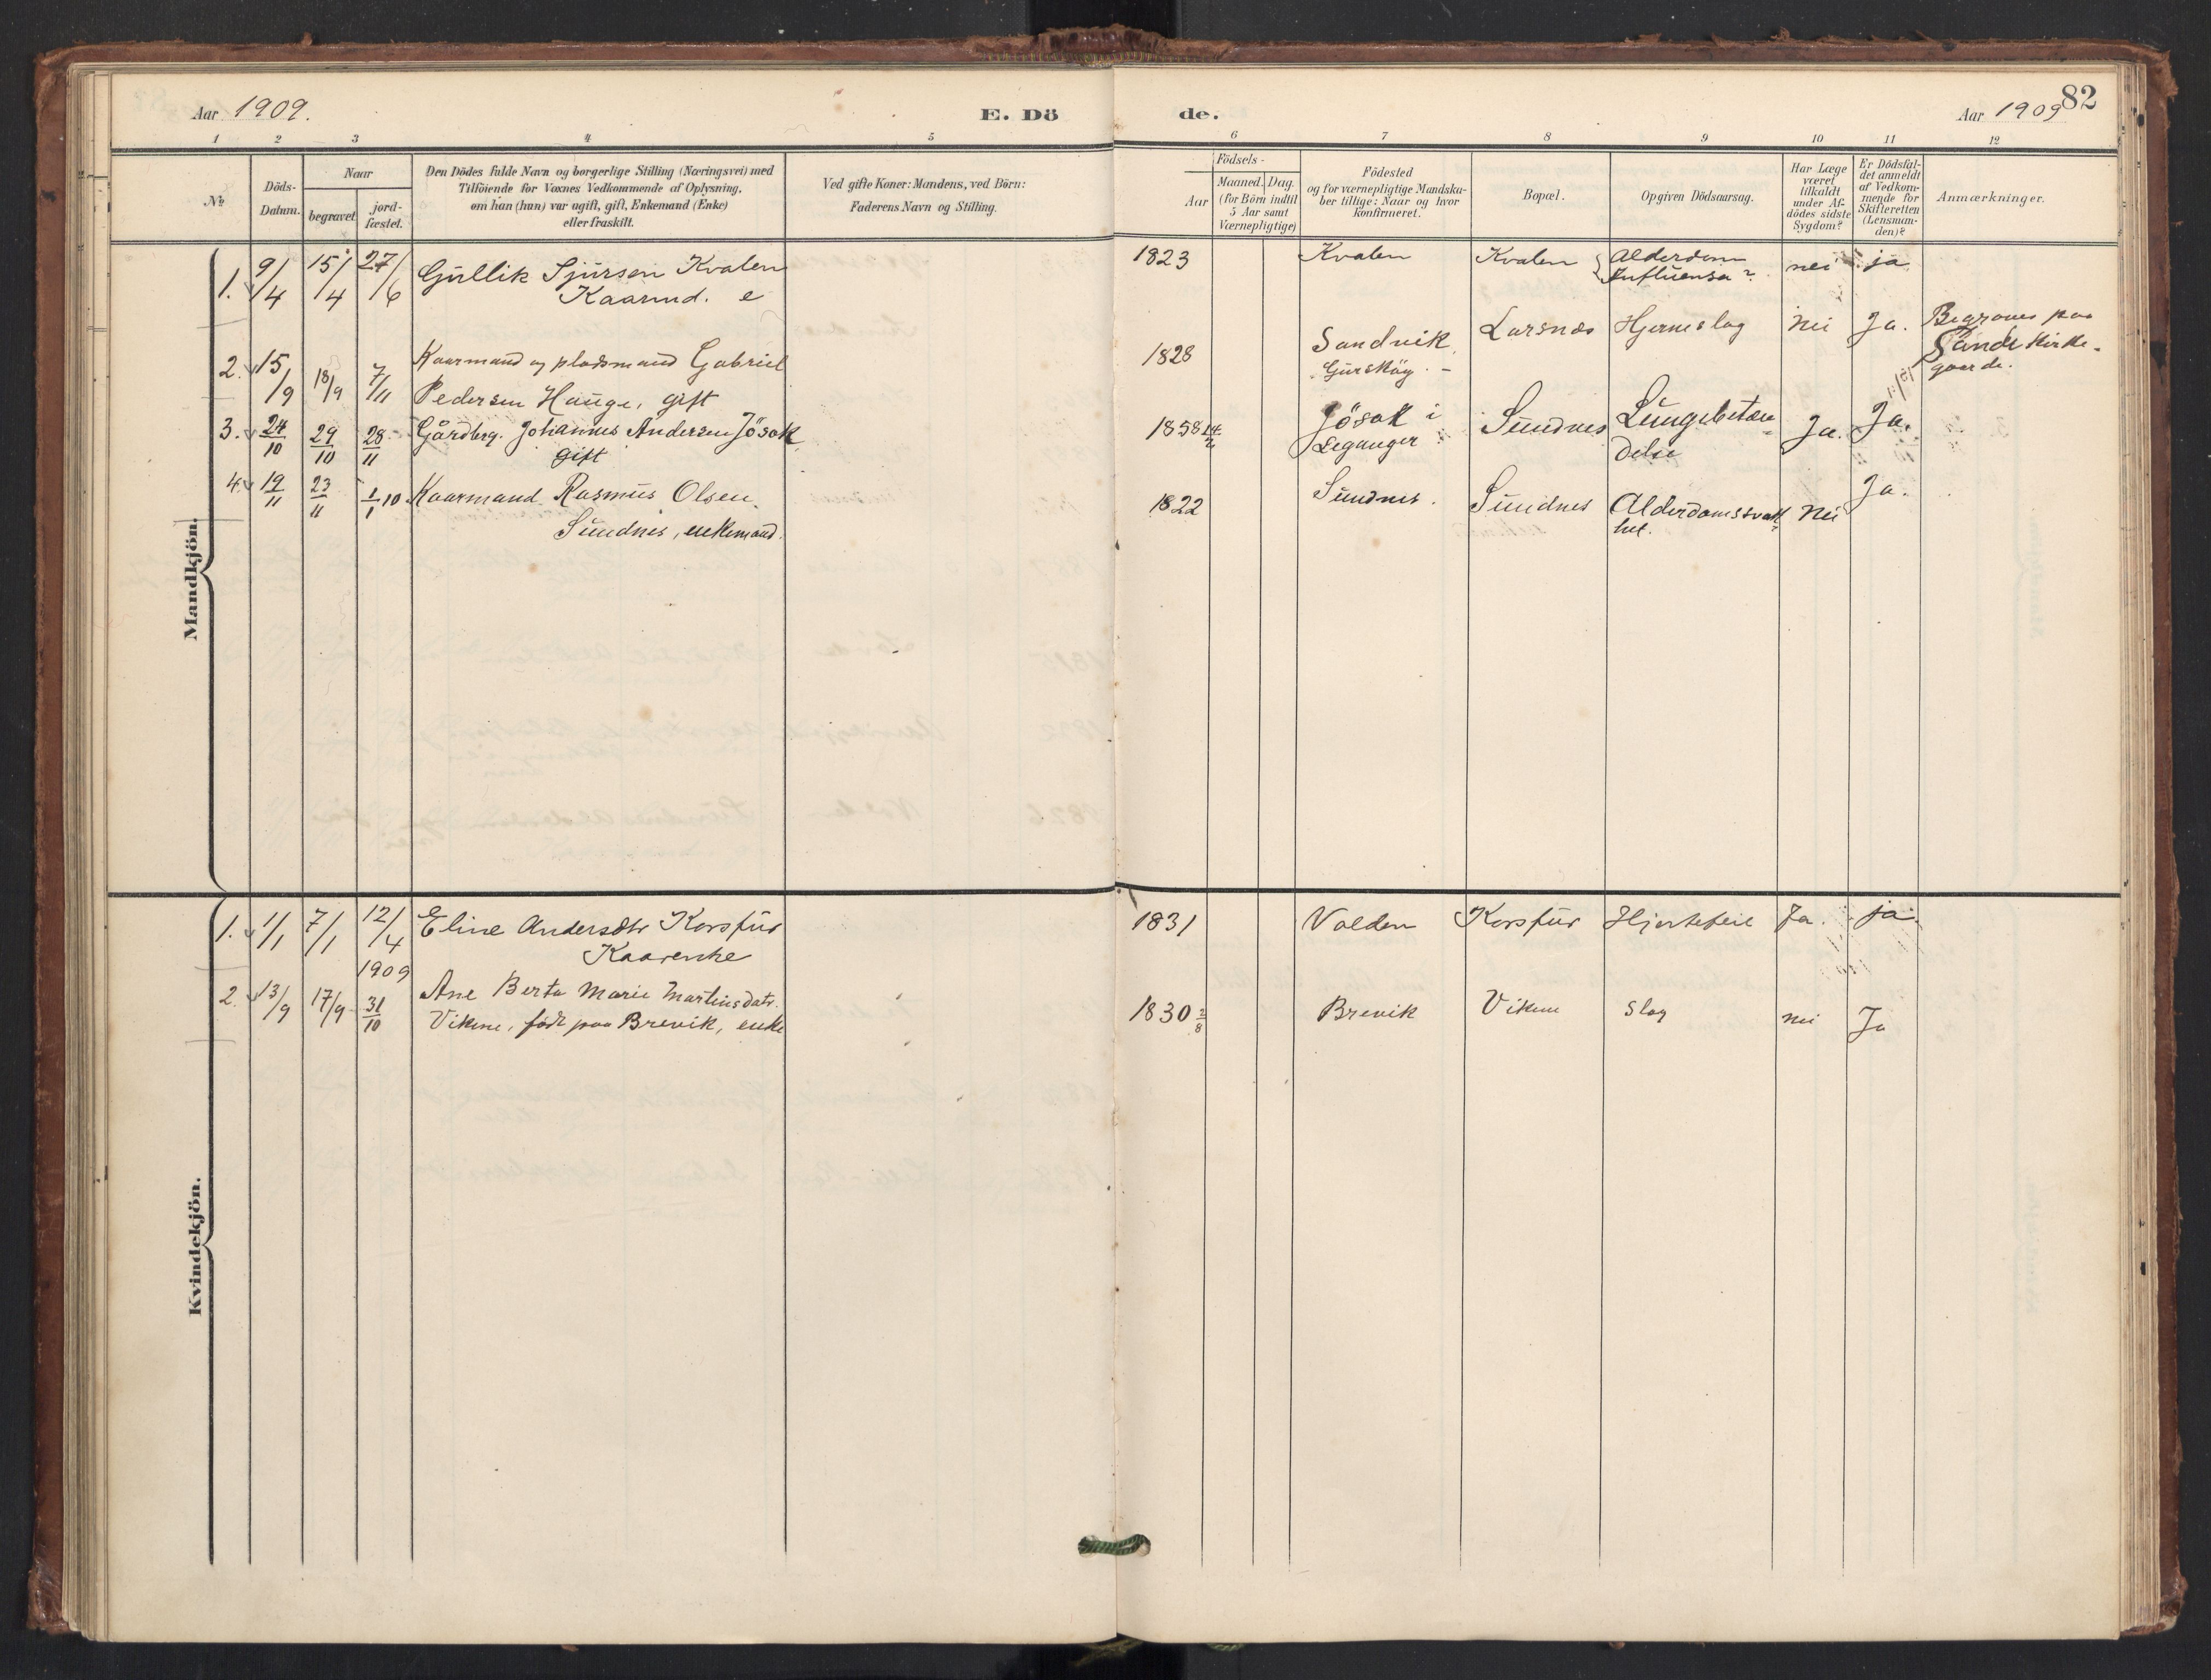 Aar 1909.
E. Dö
de.
Aar 1909
82
1 2 3 4 5
6 7 8 9 10 11 12
No
Döds-
Datum.
Naar
begravet
jord-
fæstet.
Den Dödes fulde Navn og borgerlige Stilling (Næringsvei) med
Tilföiende for Voxnes Vedkommende af Oplysning,
om han (hun) var ugift, gift, Enkemand (Enke)
eller fraskilt.
Ved gifte Koner: Mandens, ved Börn:
Faderens Navn og Stilling.
Födsels-
Aar
Maaned. Dag.
(for Börn indtil
5 Aar samt
Værnepligtige)
Födested
og for værnepligtige Mandska-
ber tillige: Naar og hvor
konfirmeret.
Bopæl.
Opgiven Dödsaarsag.
Har Læge
været
tilkaldt
under Af-
dödes sidste
Sygdom?
Er Dödsfal-
det anmeldt
af Vedkom-
mende for
Skifteretten
(Lensman-
den)?
Anmærkninger.
Mandkjön.
1. 9/4 15/4 27/6 Gullik Sjursen Kvalen
Kaarmd. e
1823 Kvalen Kvalen Alderdom
Influensa? nei ja
2. 15/9 18/9 7/11 Kaarmand og pladsmand Gabriel
Pedersen Hauge, gift
1828 Sandvik
Gurskøy. - Larsnes Hjerneslag Nei Ja. Begraves paa
Sande Kirke-
gaarde.
3. 24/10 29/10 28/11 Gårdbrg. Johannes Andersen Jösok
gift
1858 14/2 Jösok i
Leganger Sundnes Lungebetæn-
delse Ja. Ja.
4. 19/11 23/11 1/1 10 Kaarmand Rasmus Olsen
Sundnes, enkemand.
1822 Sundnes. Sundnes Alderdomssvak-
het. Nei Ja.
Kvindekjön.
1. 1/1 7/1 12/4 Eline Andersdtr Korsfur
Kaarenke
1909
1831 Volden Korsfur Hjertefeil Ja. ja.
2. 13/9 17/9 31/10 Ane Berta Marie Martinsdatr.
Vikene, født paa Brevik, enke
1830 2/8 Brevik Vikene Slag nei Ja